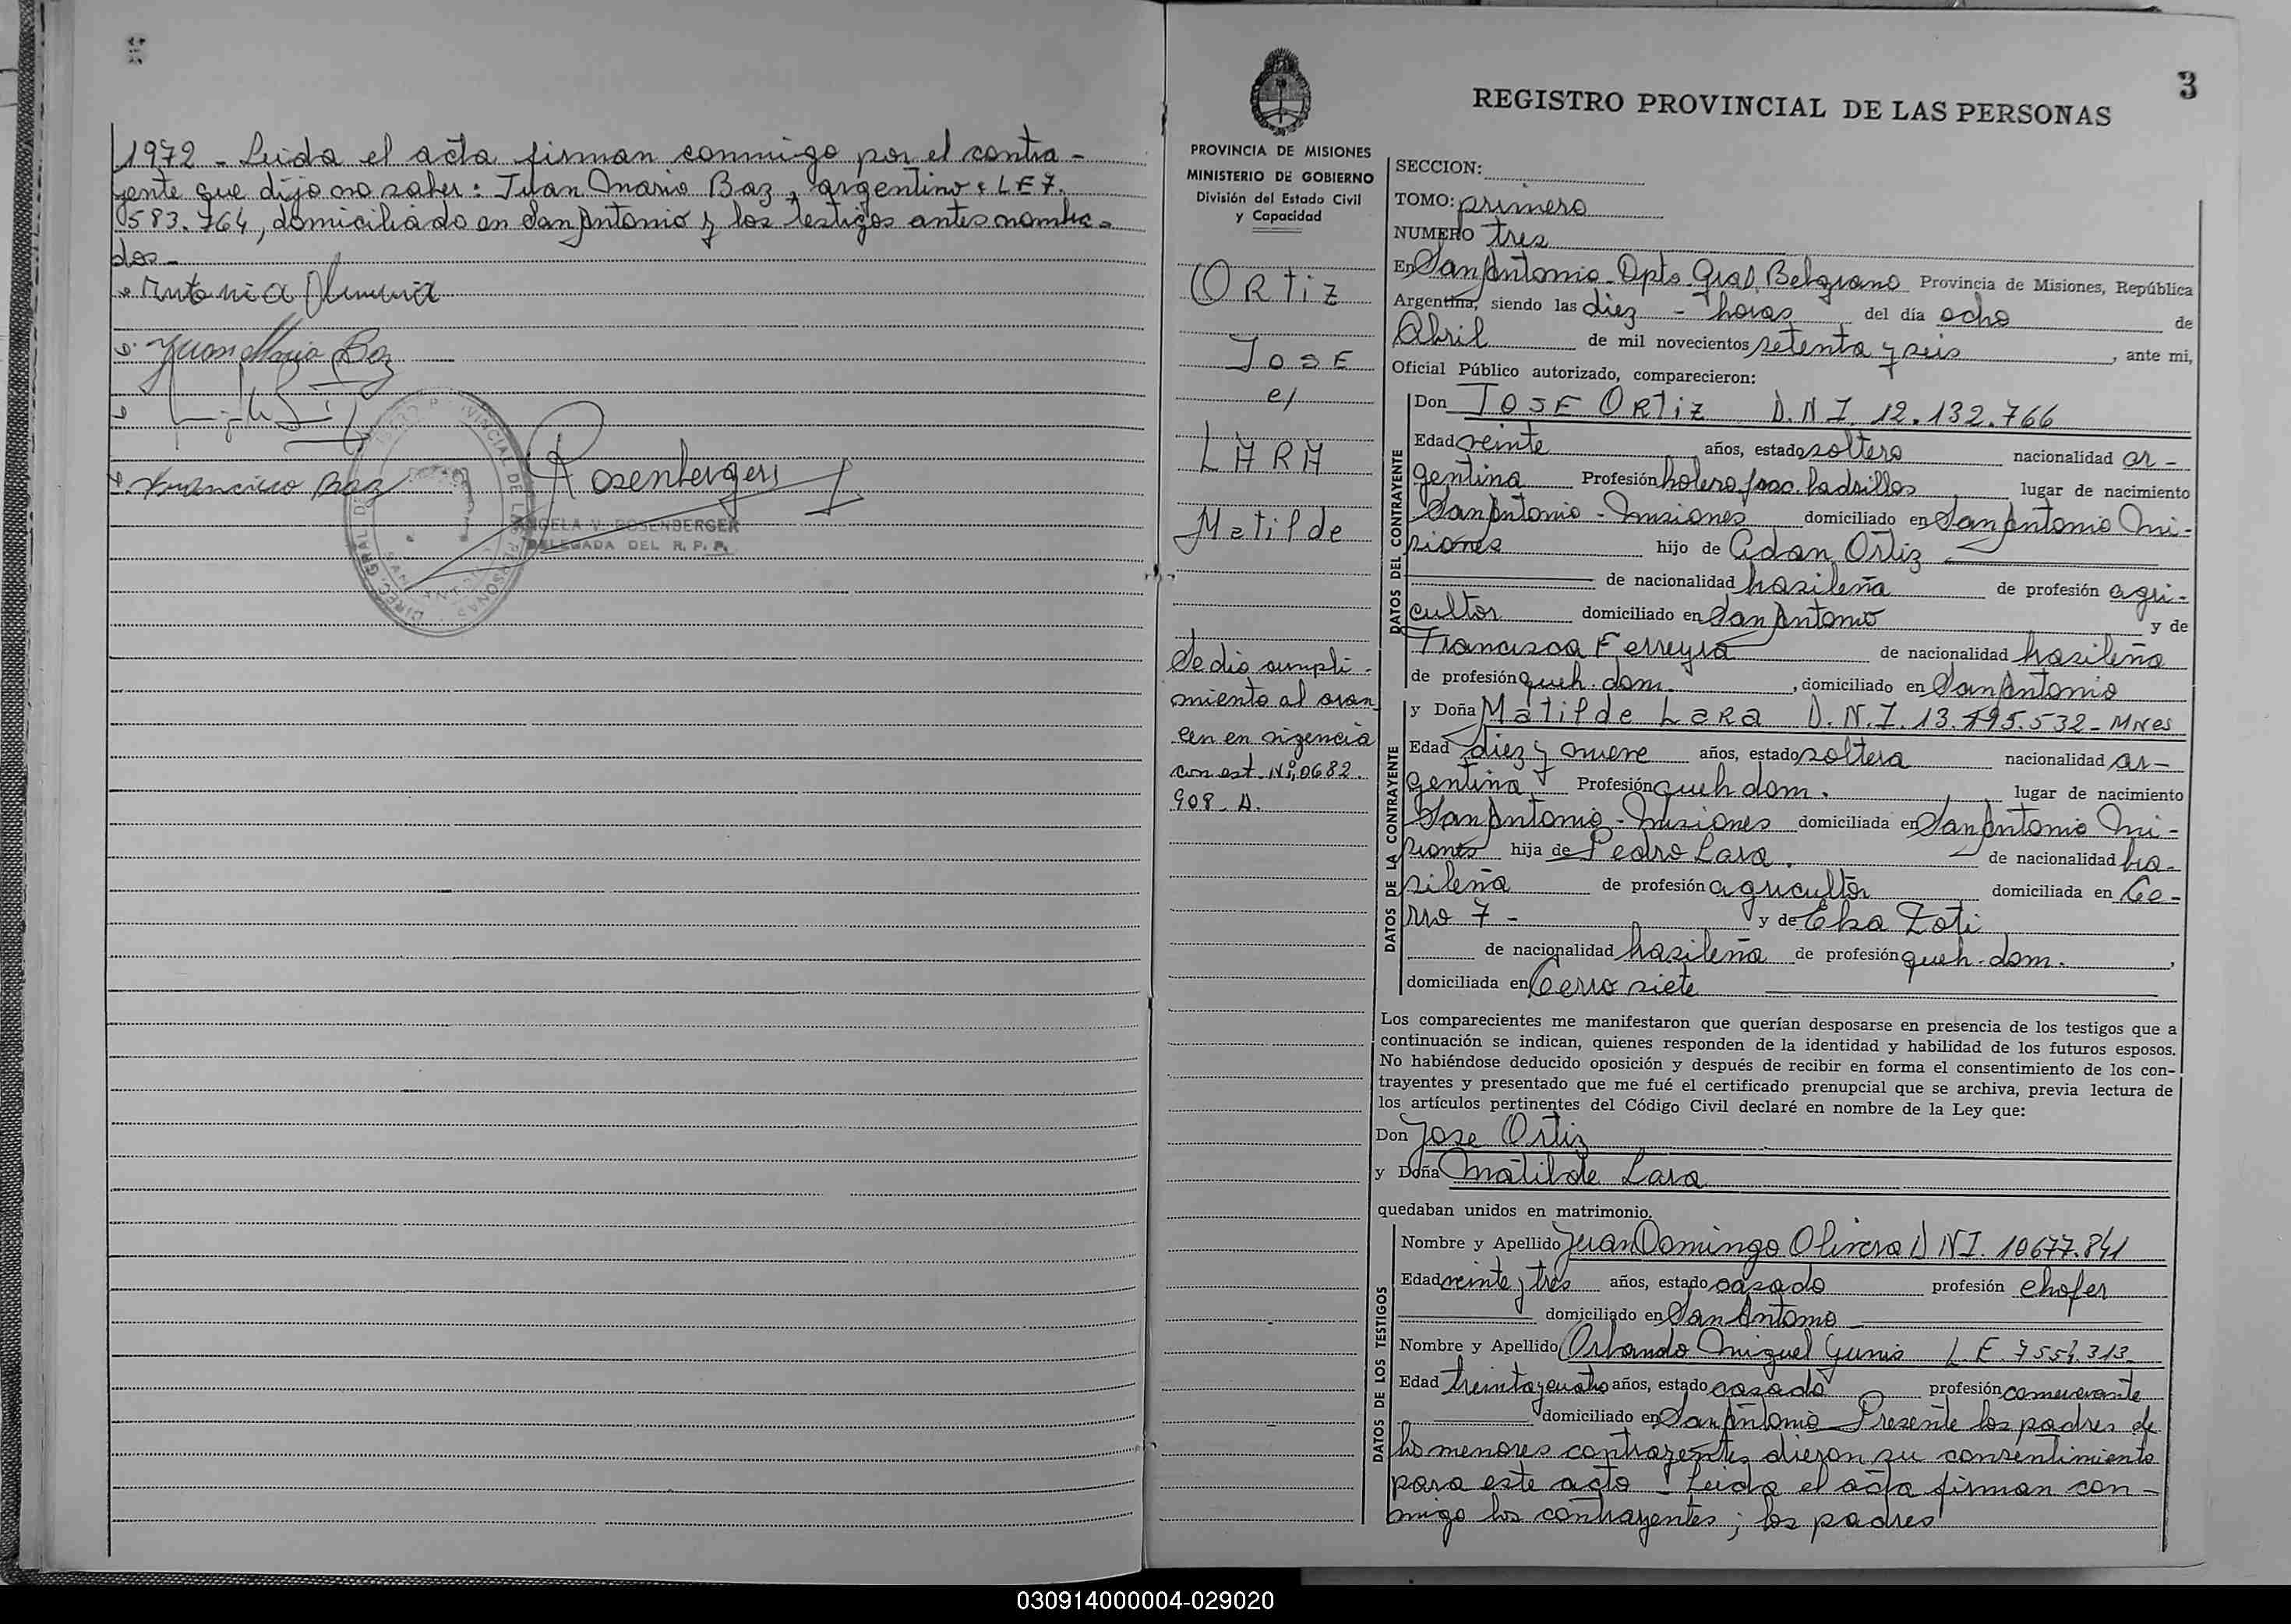 1972 - Leida el acta firman conmigo por el contra-
yente que dijo no saber: Juan Mario Baz, argentino, L E 7.
583.764, domiciliado en San Antonio y los testigos antes nombra-
dos -
Antonia
Juan Mario Baz
Francisco Baz
Rosenbergers
ANGELA V. ROSENBERGER
DELEGADA DEL R. P. P.
3
REGISTRO PROVINCIAL DE LAS PERSONAS
PROVINCIA DE MISIONES
MINISTERIO DE GOBIERNO
División del Estado Civil
y Capacidad
ORTIZ
JOSE
c/
LARA
Matilde
Se dio cumpli-
miento al aran
cen en vigencia
con est. Nº 0682
908 - A.
SECCION:
TOMO: primero
NUMERO tres
En San Antonio - Dpto. Gral. Belgrano Provincia de Misiones, República
Argentina, siendo las diez - horas del día ocho de
Abril de mil novecientos setenta y seis, ante mi,
Oficial Público autorizado, comparecieron:
DATOS DEL CONTRAYENTE
Don JOSE ORTIZ D.N.I. 12.132.766
Edad veinte años, estado soltero nacionalidad ar-
gentina Profesión ladrillos lugar de nacimiento
San Antonio - Misiones domiciliado en San Antonio Mi-
siones hijo de Adan Ortiz
de nacionalidad brasileña de profesión agri-
cultor domiciliado en San Antonio y de
Francisca Ferreyra de nacionalidad brasileña
de profesión queh. dom. , domiciliado en San Antonio
DATOS DE LA CONTRAYENTE
y Doña Matilde Lara D.N.I. 13.495.532 - MNES
Edad diez y nueve años, estado soltera nacionalidad ar-
gentina Profesión queh dom. lugar de nacimiento
San Antonio - Misiones domiciliada en San Antonio Mi-
siones hija de Pedro Lara. de nacionalidad bra-
sileña de profesión agricultor domiciliada en Ce-
rro 7 - y de Elsa Zoti
de nacionalidad brasileña de profesión queh. dom.,
domiciliada en Cerro siete
Los comparecientes me manifestaron que querían desposarse en presencia de los testigos que a
continuación se indican, quienes responden de la identidad y habilidad de los futuros esposos.
No habiéndose deducido oposición y después de recibir en forma el consentimiento de los con-
trayentes y presentado que me fué el certificado prenupcial que se archiva, previa lectura de
los artículos pertinentes del Código Civil declaré en nombre de la Ley que:
Don Jose Ortiz
y Doña Matilde Lara
quedaban unidos en matrimonio.
DATOS DE LOS TESTIGOS
Nombre y Apellido Juan Domingo Olivera D N I. 10677.841
Edad veinte y tres años, estado casado profesión chofer
domiciliado en San Antonio
Nombre y Apellido Orlando Miguel L. E. 7554.313
Edad treinta y cuatro años, estado casado profesión comerciante
domiciliado en San Antonio Presente los padres de
los menores contrayentes dieron su consentimiento
para este acto - Leida el acta firman con-
migo los contrayentes; los padres
030914000004-029020